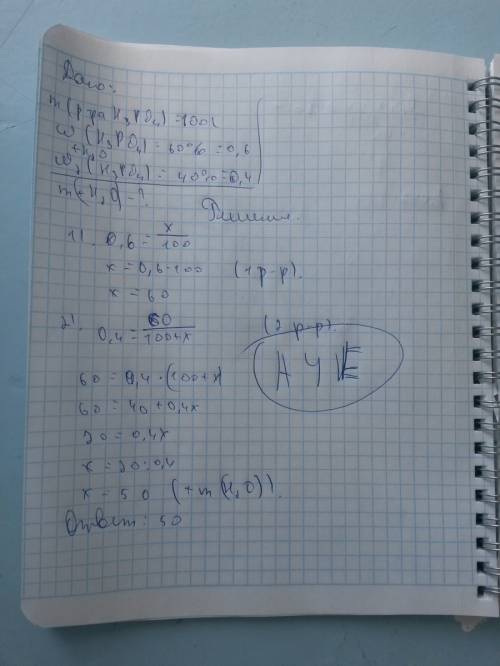 Дано:
m (р-ра H₃PO₄) = 100г
ω (H₃PO₄) = 60% = 0,6
+H₂O
ω₂ (H₃PO₄) = 40% = 0,4
m (H₂O) - ?
Решение.
1). 0,6 = x/100
x = 0,6·100 (1 р-р).
x = 60
2). 0,4 = 60/100+x (2 р-р).
60 = 0,4 · (100+x)
60 = 40 + 0,4x
20 = 0,4x
x = 20:0,4
x = 50 (+m(H₂O)).
Ответ: 50
АУЕ